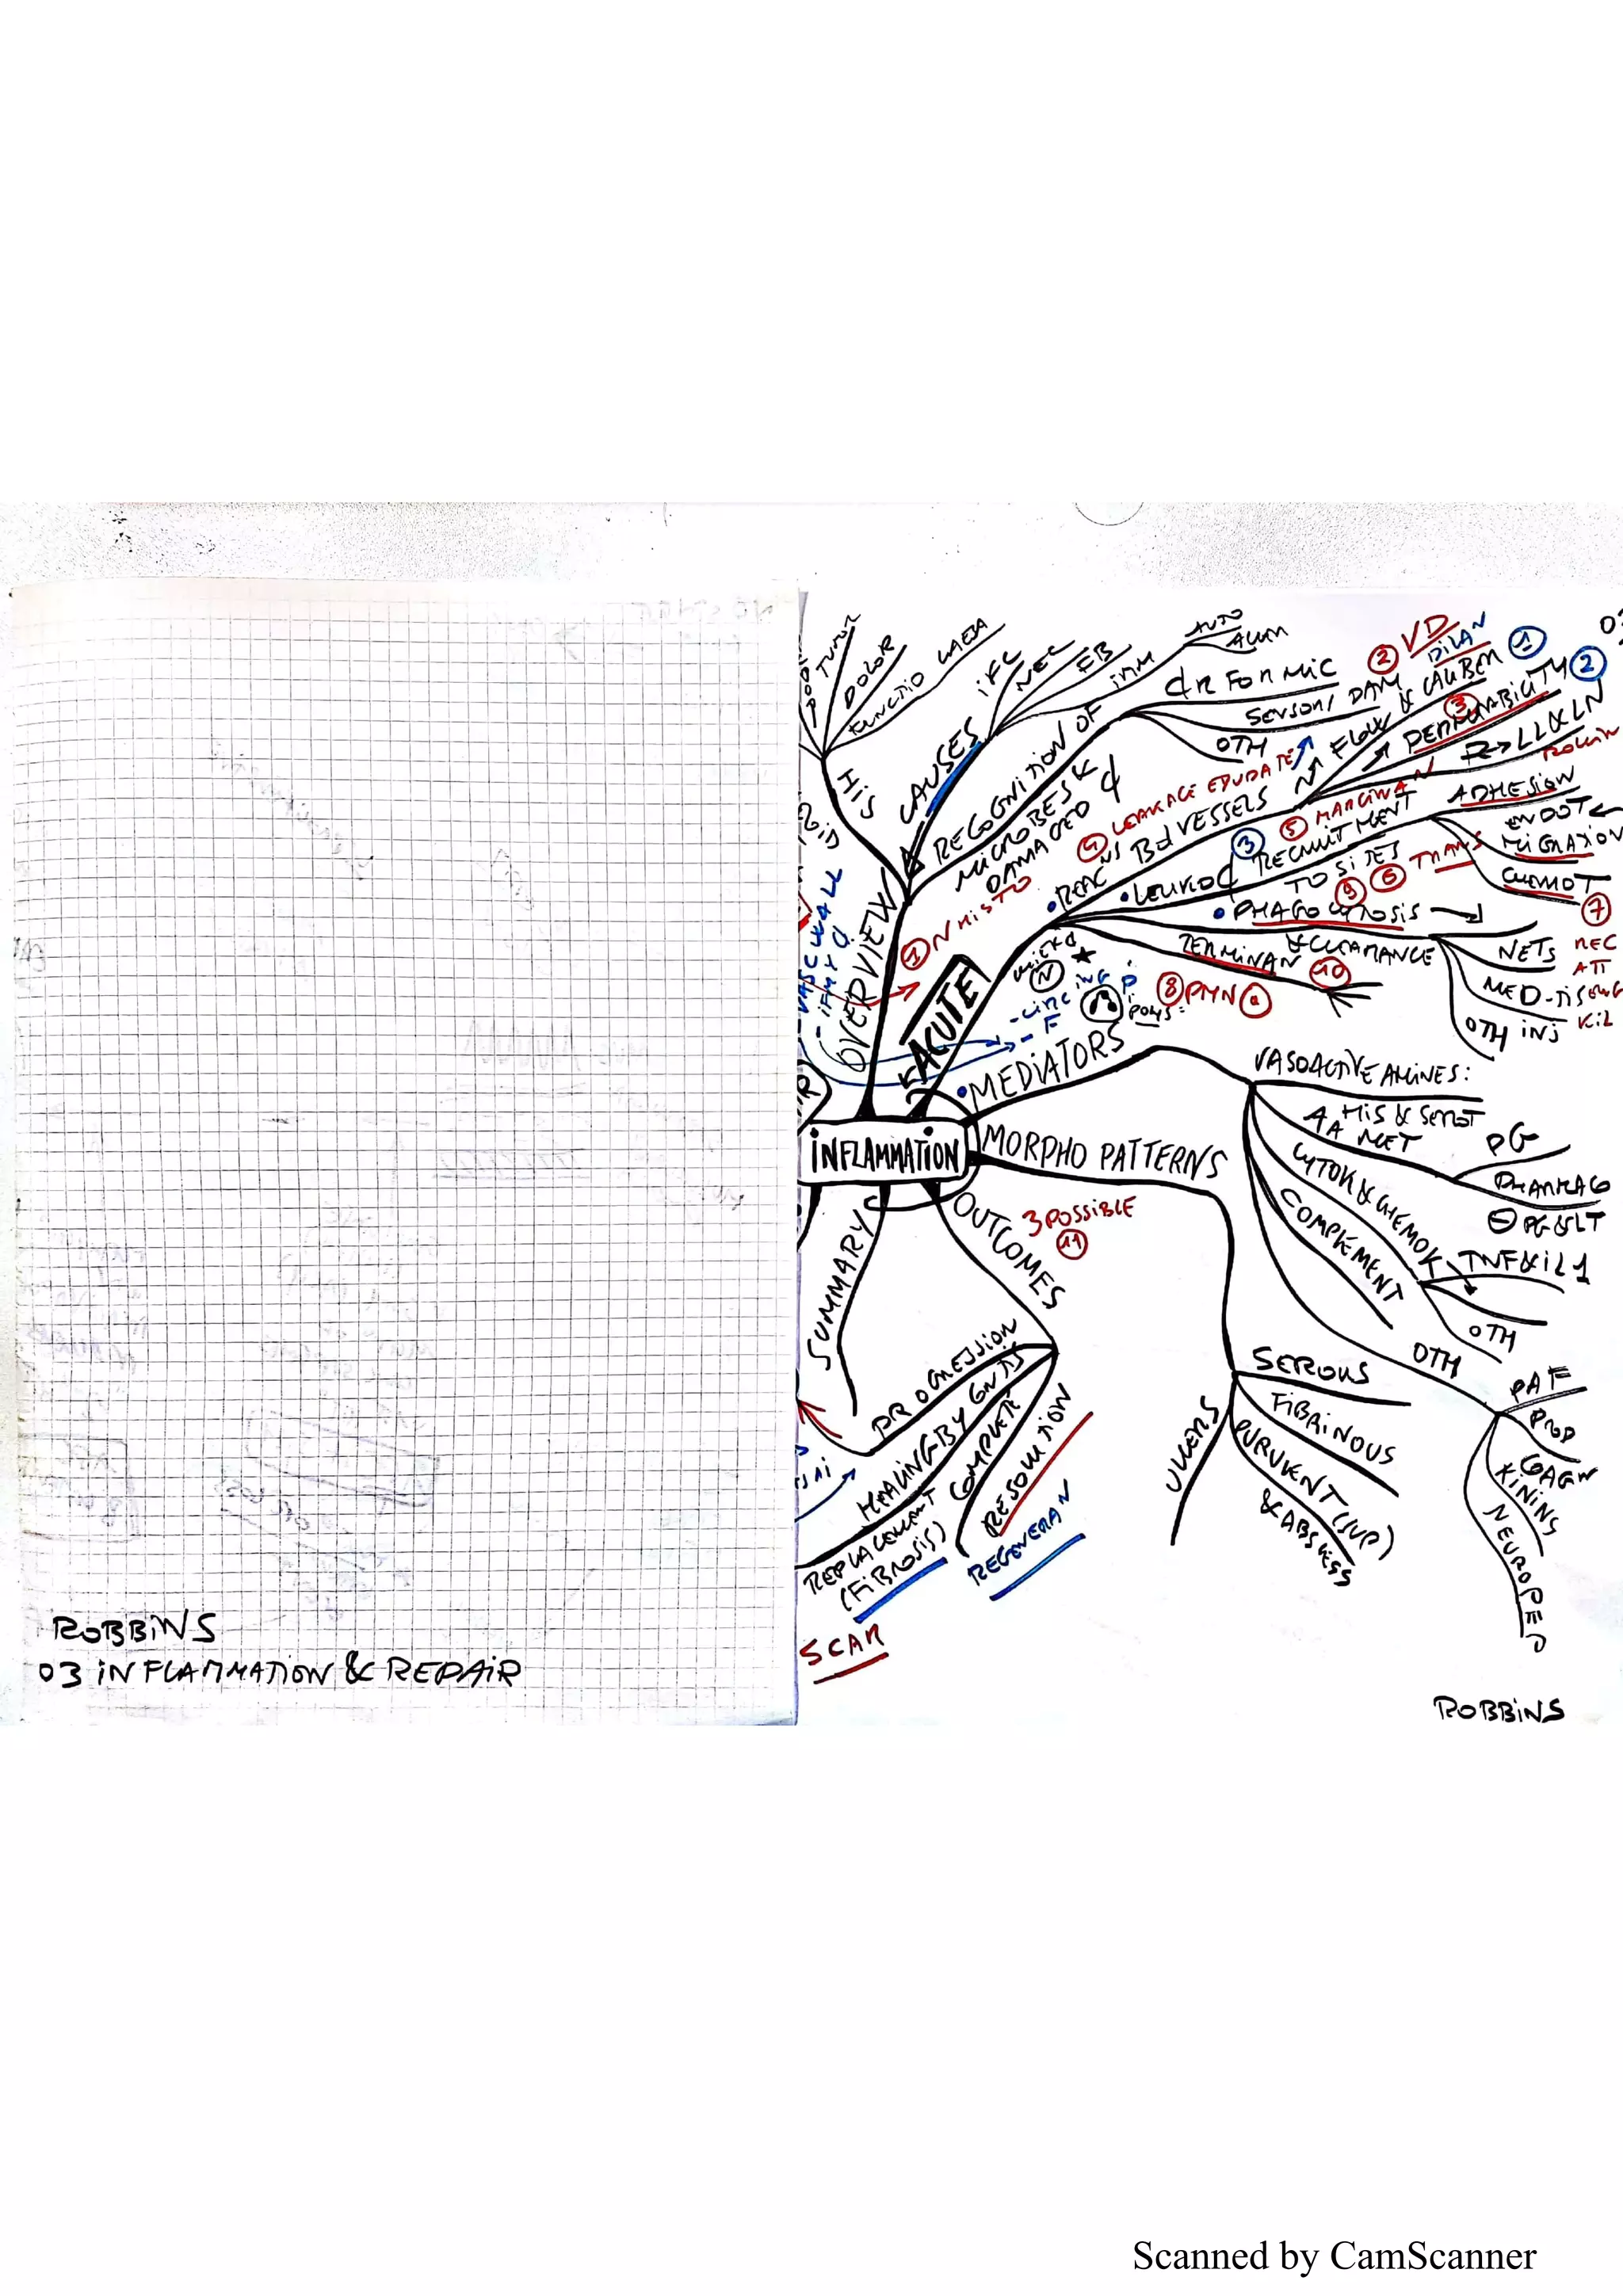 TUMOR
DOLOR
FUNCTIO LAESA
HIS
CAUSES
IFC
NEC
FB
IMM
AUTO
RECOGNITION OF
MICROBES &
DAMAGED
R FOR MIC
SENSORI DAM
OTH
② VD
DILAN
FLOW & CALIBER ①
③
PERMEABILITY ②
R→LL & LN
④ LEAKAGE EXUDATE
• REAC
NS Bd VESSELS
⑤ MARGINA N
ROLLIN
③
RECRUITMENT
TO SITES
ADHESION
ENDOT
MIGRATION
⑨ ⑥ TRANS
CHEMOT
⑦
• PHAGOCYTOSIS
& CLEARANCE
NETS
REC
ATT
MED-TIS
ENG
OTH INJ
KIL
TERMINAN ⑩
① N HISTO
OVERVIEW
ACUTE
VASC WALL
⑧ PMN
• MEDIATORS
VASOACTIVE AMINES:
HIS & SEROT
AA MET
PG
PHARMACO
PG & LT
CYTOK & CHEMOK
TNF & IL1
OTH
COMPLEMENT
OTH
PAF
PROD
COAGN
KININS
NEUROPEP
INFLAMMATION
MORPHO PATTERNS
SEROUS
FIBRINOUS
PURULENT (SUP)
& ABSCESS
ULCERS
OUTCOMES
3 POSSIBLE
⑪
SUMMARY
PROGRESSION
HEALING BY CN TIS
REPLACEMENT
(FIBROSIS)
SCAR
COMPLETE
RESOLUTION
REGENERAN
ROBBINS
03 INFLAMMATION & REPAIR
ROBBINS
Scanned by CamScanner